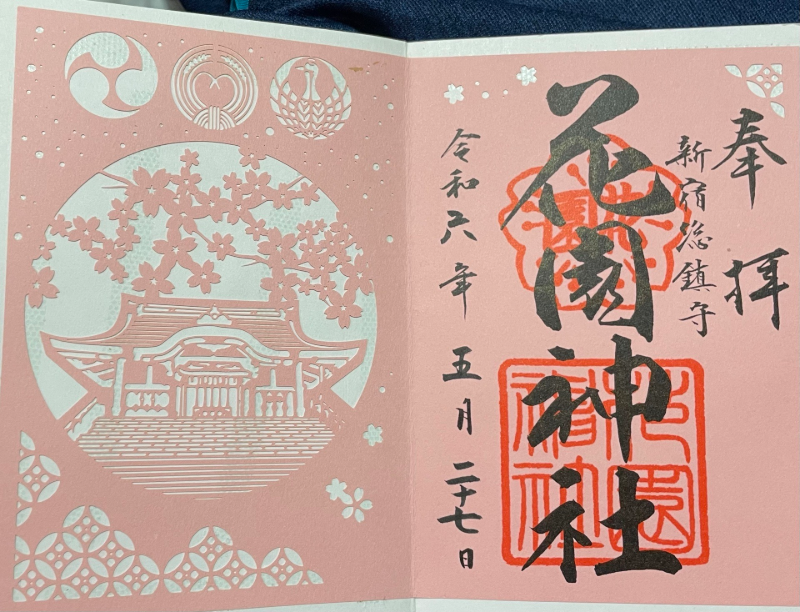 奉拝
新宿総鎮守
花園神社
令和六年五月二十七日
花園
花園神社